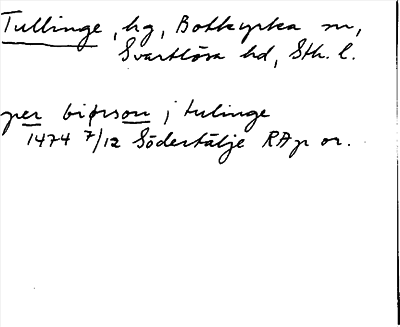 Tullinge, hg, Botkyrka sn,
Svartlösa hd, Sth. l.
per biørson i tulinge
1474 7/12 Södertälje RAp or.